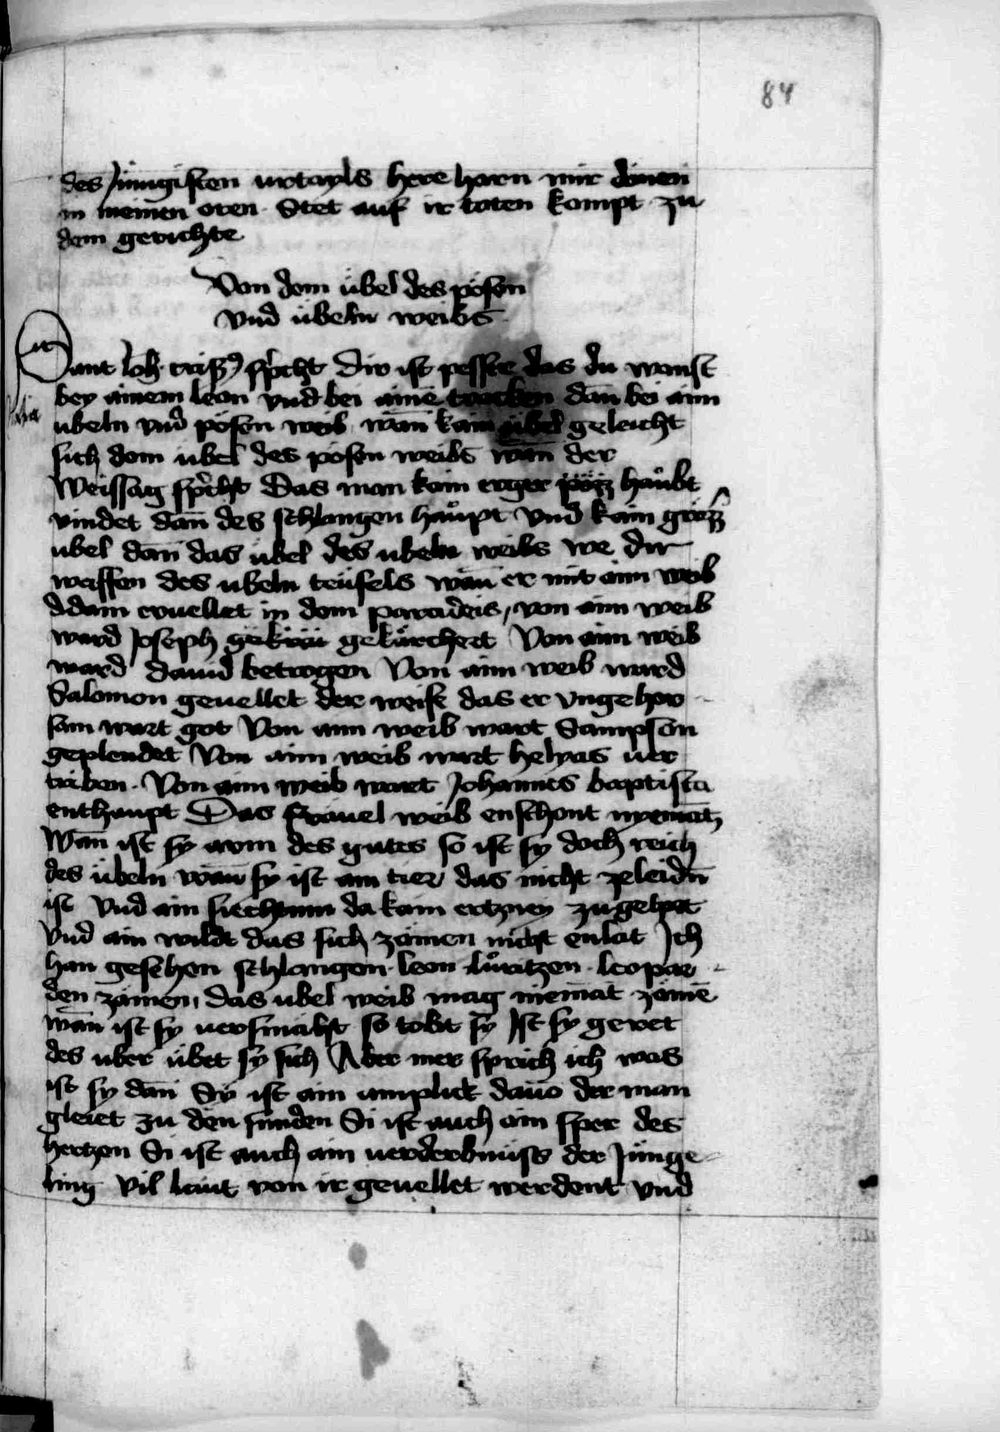 84
des Jüngisten urtayls here horn mir dönen
in meinen oren Stet auf ir toten kompt zu
dem gerichte
Von dem übel des pösen
vnd übeln weibs
Sant Joh crisꝰ sp̄cht Dir ist pesser das du wonst
bey ainem leon vnd bei aine tracken dan̄ bei aim
ubeln vnd pösen weib wan̄ kain übel geleicht
sich dem übel des pösen weibs wan̄ der
Weissag sp̄cht Das man kain erger haůbt
vindet dan̄ des schlangen haůpt vnd kain grösz
ubel dan̄ das übel des ubeln weibs we dir
waffen des ubeln teüfels wan̄ er mit aim weib
Adam ervellet in dem paradeis, von aim weib
ward Joseph gekärchert Von aim weib
ward dauid betrogen Von aim weib ward
Salomon geuellet der weise das er vngehor
sam wart got Von aim weib wart Sampson
geplendet Von aim weib wart helyas uer
triben. Von aim weib wart Johannes baptista
enthaupt Das fräuel weib enschont nyemātz
Wan̄ ist sy arm des gutes so ist sy doch reich
des übeln wan̄ sy ist ain tier das nicht zeleidn̄
ist vnd ain siechtum da kain ertzney zu gehort
vnd ain wildt das sich zämen nicht enlat Ich
han gesehen schlangen leon leopar
den zämen, das ubel weib mag niemāt zämē
wan̄ ist sy uersmächt so tobt sy Ist sy geret
des uber übet sy sich Aber mer sprich ich was
ist sy dan̄ Sy ist ain anplick dauō der man
gleiet zu den sünden Si ist auch ain sper des
hertzen Si ist auch ain uerderbnüss der Jünge
ling vil leüt von ir geuellet werdent vnd